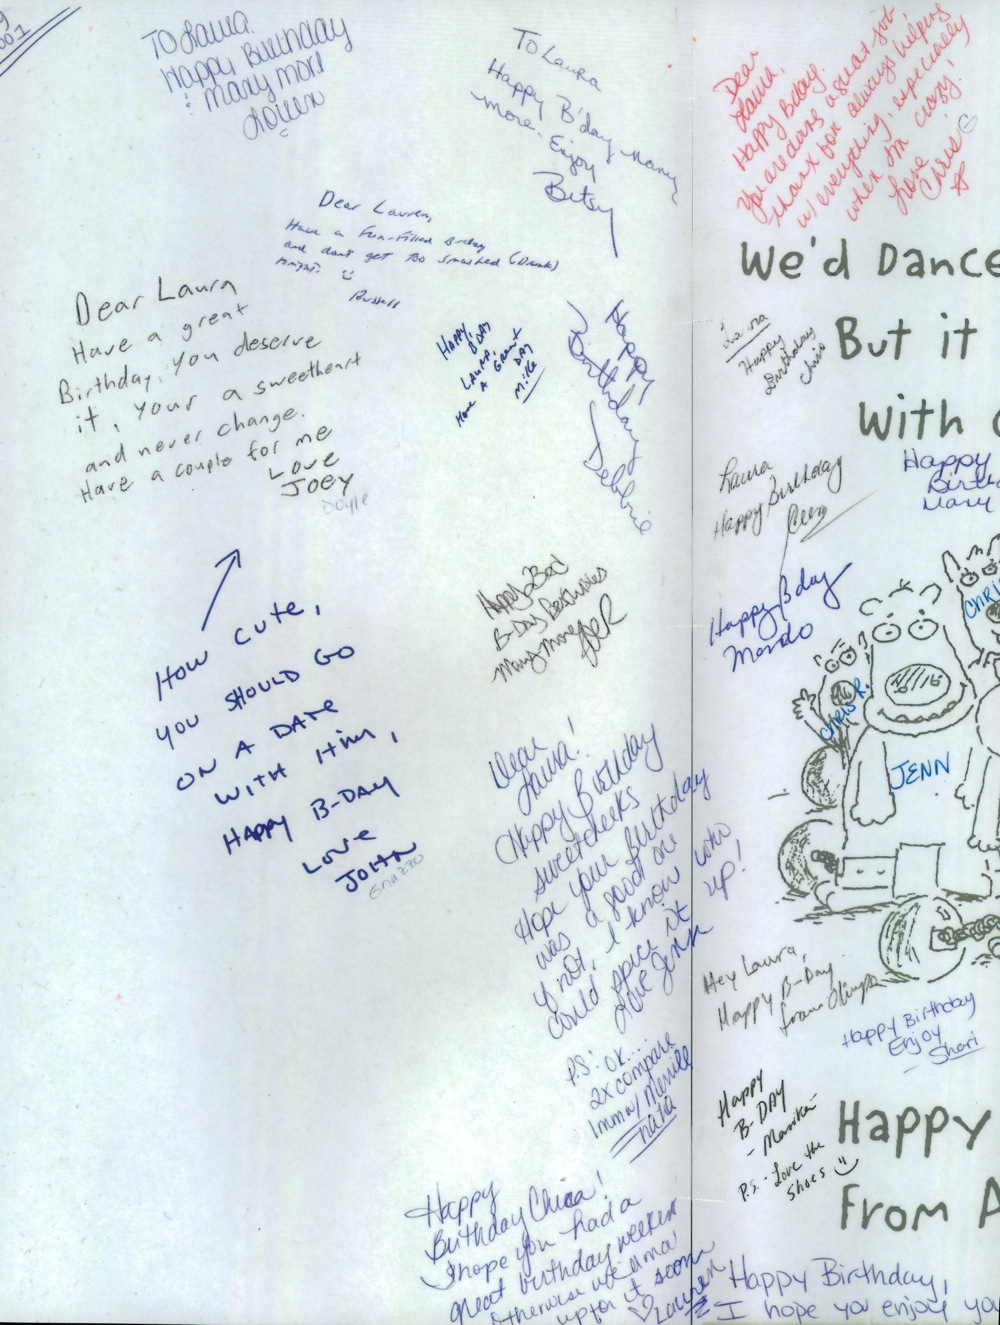 9
001
To Laura
Happy Birthday
& many more
Doreen
To Laura
Happy B'day Many
more - Enjoy
Betsy
Dear
Laura,
Happy Bday
You are doing a great job,
thanx for always helping
w/ everything, especially
when I'm crazy!
Love
Chris
Dear Lauren,
Have a fun-filled B-day
and don't get too smashed (Drunk)
tonight.
Russell
Dear Laura
Have a great
Birthday, you deserve
it, your a sweetheart
and never change.
Have a couple for me
Love
Joey
Doyle
Happy
B-DAY
Laura,
Have a Great
Day
Mike
Happy
Birthday
Debbie
We'd Dance
But it
With
Laura
Happy
Birthday
Chris
Laura
Happy Birthday
Happy
Birth
Many
Happy Bday
Mondo
B-Day Best wishes
Many more
How cute,
you should go
on a date
with him,
Happy B-Day
Love
John
Dear
Laura!
Happy Birthday
sweetcheeks
Hope your birthday
was a good one
if not, I know who
could spice it up!
Love Jenn
P.S. OK...
2x compare
CHRI
Chris R.
JENN
Hey Laura,
Happy B-Day
from Olimpia
Happy Birthday
Enjoy
- Shari
Happy
B-Day
- Marika -
P.S. - Love the
shoes
Happy
From A
Happy
Birthday Chica!
I hope you had a
great birthday weekend
otherwise we'll
up for it soon
Lauren
Happy Birthday,
I hope you enjoy yo